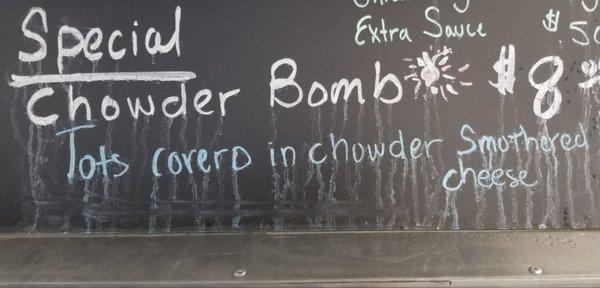 Extra Sauce $ 50
Special
Chowder Bomb $8
Tots coverd in chowder Smothered
cheese